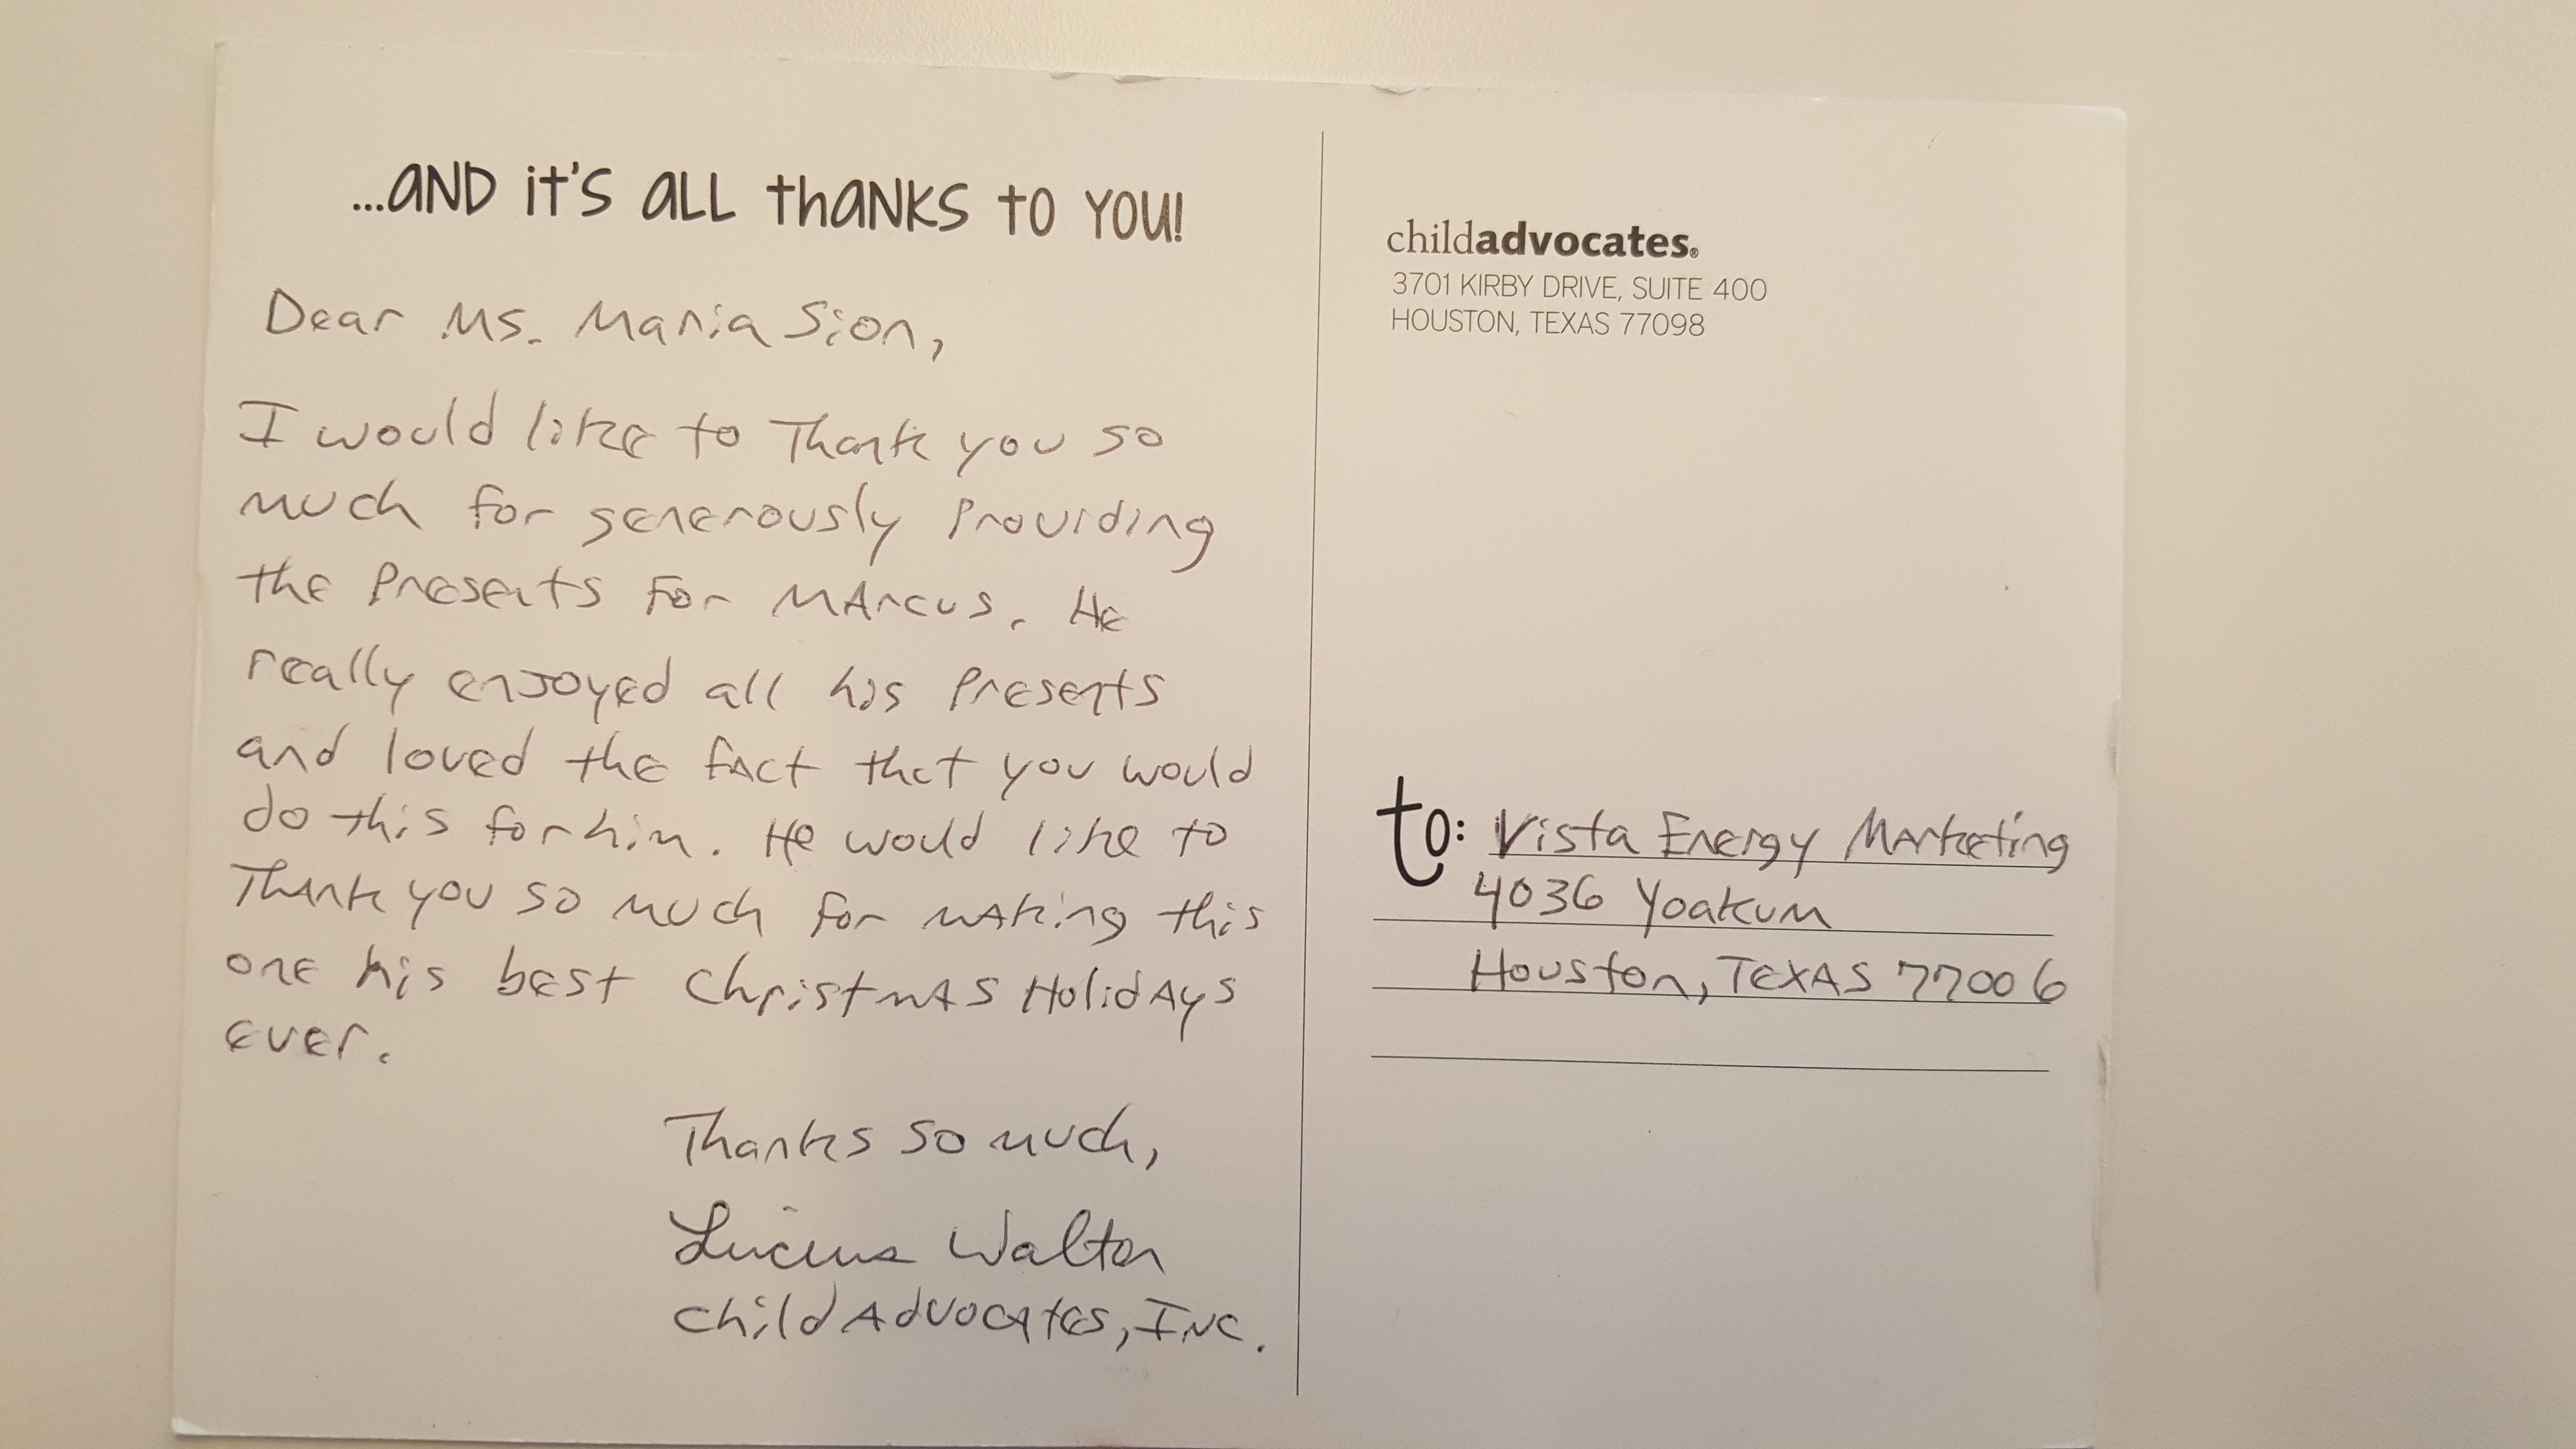 ...AND it's ALL thANKS tO YOU!
Dear Ms. Maria Sion,
I would like to Thank you so
much for generously Providing
the Presents For MArcus. He
really enjoyed all his Presents
and loved the fAct that you would
do this for him. He would like to
ThAnk you so much for mAking this
one his best ChristmAS HolidAys
ever.
Thanks so much,
Lucius Walton
Child AdvocAtes, Inc.
childadvocates®
3701 KIRBY DRIVE, SUITE 400
HOUSTON, TEXAS 77098
to: Vista Energy MArketing
4036 Yoakum
Houston, TEXAS 77006